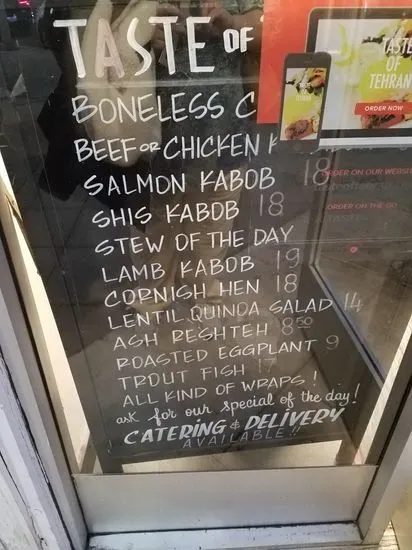 TASTE OF
BONELESS C
BEEF OR CHICKEN K
SALMON KABOB 18
SHIS KABOB 18
STEW OF THE DAY
LAMB KABOB 19
CORNISH HEN 18
LENTIL QUINOA SALAD 14
ASH RESHTEH 8 50
ROASTED EGGPLANT 9
TROUT FISH 17
ALL KIND OF WRAPS!
ask for our special of the day!
CATERING & DELIVERY
AVAILABLE!!
TASTE
OF
TEHRAN
ORDER NOW
ORDER ON OUR WEBSITE
ORDER ON THE GO